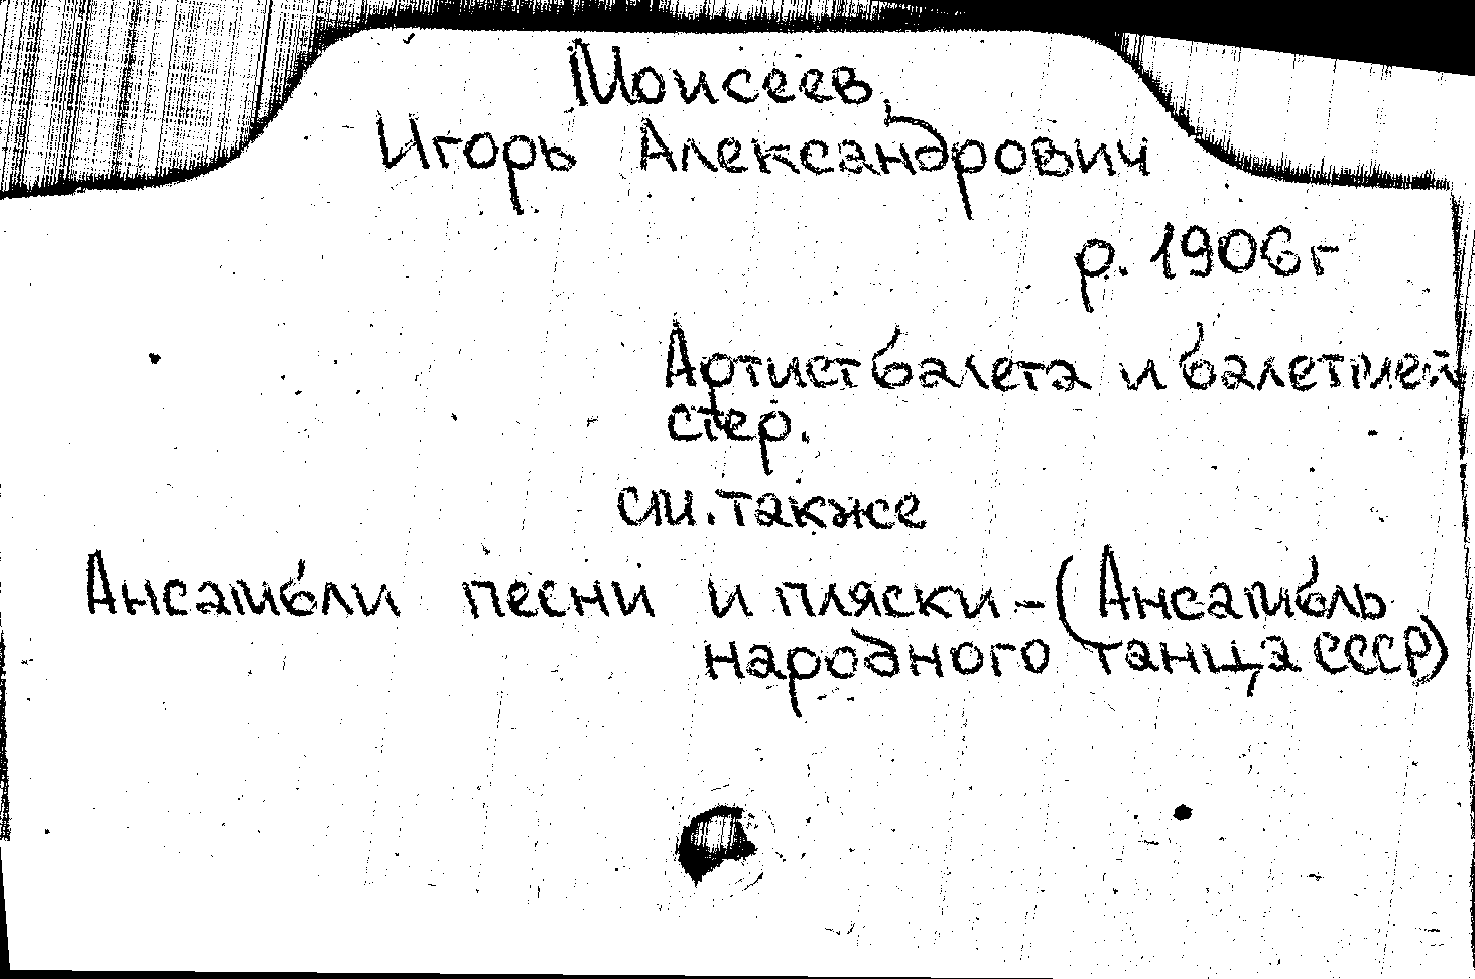 Моисеев,
Игорь Александрович
р. 1906 г
Артист балета и балетмей
стер.
см. также
Ансамбли песни и пляски - (Ансамбль
народного танца СССР)